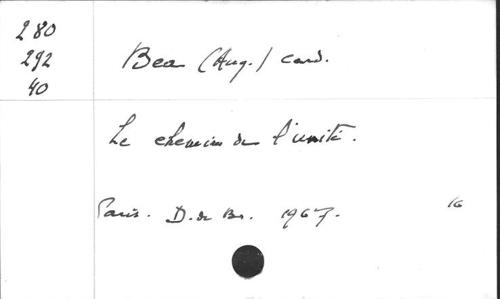 280
292
40
Bea (Aug.) card.
Le chemin de l'unité.
Paris. D. de Br. 1967.
16